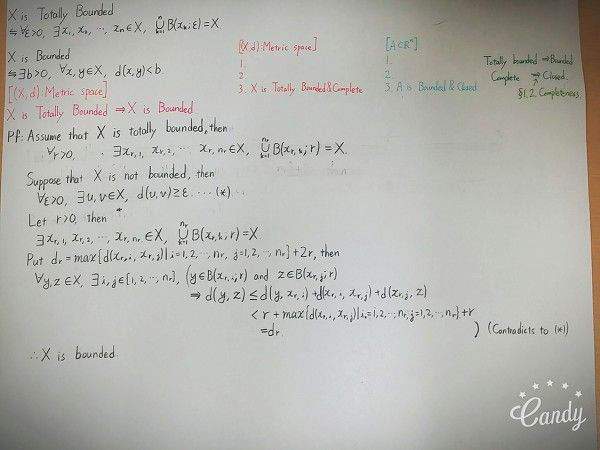 X is Totally Bounded
⇋ ∀ε>0, ∃x₁, x₂, ⋯, xₙ∈X, ⋃ₖ₌₁ⁿ B(xₖ;ε)=X.
X is Bounded
⇋ ∃b>0, ∀x,y∈X, d(x,y)<b.
[(X,d):Metric space]
1.
2.
3. X is Totally Bounded & Complete
[A⊂ℝⁿ]
1.
2.
3. A is Bounded & Closed
Totally bounded ⇒ Bounded
Complete ⇒ Closed.
§1,2. Completeness
[(X,d):Metric space]
X is Totally Bounded ⇒ X is Bounded
Pf: Assume that X is totally bounded, then
∀r>0, ∃x_{r,1}, x_{r,2}, ⋯ x_{r,n_r}∈X, ⋃_{k=1}^{n_r} B(x_{r,k};r)=X.
Suppose that X is not bounded, then
∀ε>0, ∃u,v∈X, d(u,v)≥ε. ⋯(*)
Let r>0, then
∃x_{r,1}, x_{r,2}, ⋯, x_{r,n_r}∈X, ⋃_{k=1}^{n_r} B(x_{r,k};r)=X
Put d_r=max{d(x_{r,i}, x_{r,j})|i=1,2,⋯,n_r, j=1,2,⋯,n_r}+2r, then
∀y,z∈X, ∃i,j∈{1,2,⋯,n_r}, (y∈B(x_{r,i};r) and z∈B(x_{r,j};r)
⇒ d(y,z)≤d(y,x_{r,i})+d(x_{r,i},x_{r,j})+d(x_{r,j},z)
<r+max{d(x_{r,i},x_{r,j})|i=1,2,⋯,n_r, j=1,2,⋯,n_r}+r
=d_r ) (Contradicts to (*))
∴X is bounded.
Candy